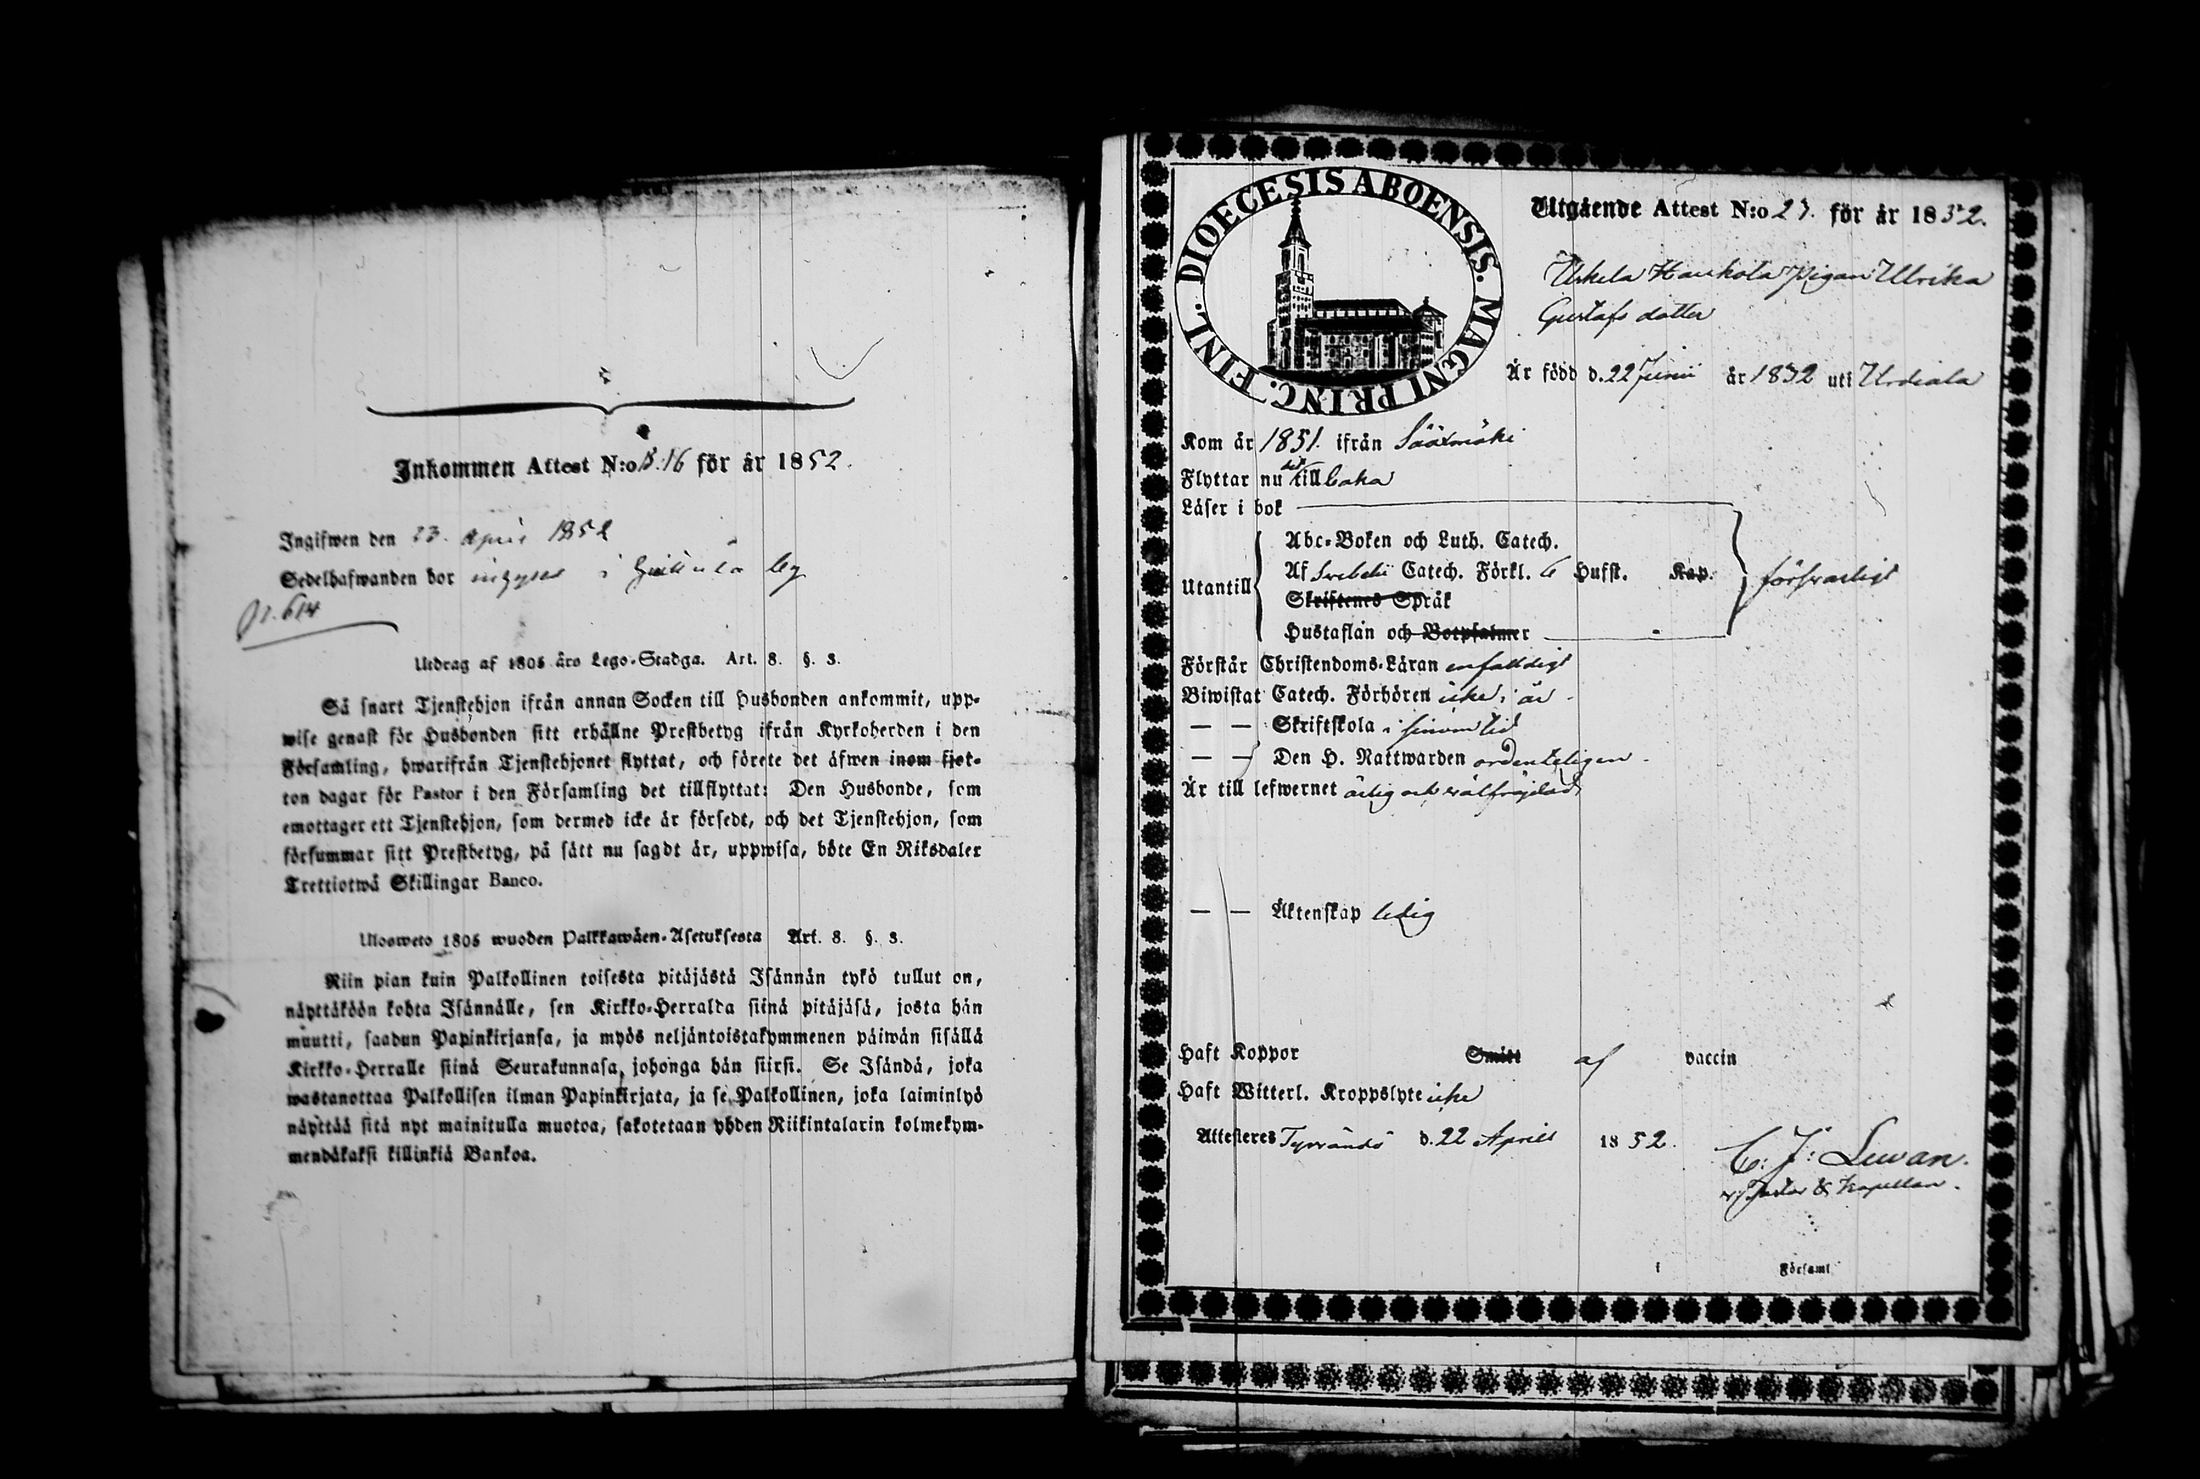 Inkommen Attest N:o B.16 för år 1852.
Ingifwen den 23. April 1852
Sedelhafwanden bor i by
p. 614
Utdrag af 1805 års Lego-Stadga. Art. 8. §. 3.
Så snart Tjenstehjon ifrån annan Socken till Husbonden ankommit, upp-
wise genast för Husbonden sitt erhållne Prestbetyg ifrån Kyrkoherden i den
Församling, hwarifrån Tjenstehjonet flyttat, och förete det äfwen inom fjor-
ton dagar för Pastor i den Församling det tillflyttat: Den Husbonde, som
emottager ett Tjenstehjon, som dermed icke är försedt, och det Tjenstehjon, som
försummar sitt Prestbetyg, på sätt nu sagdt är, uppwisa, böte En Riksdaler
Trettiotwå Skillingar Banco.
Ulosweto 1805 wuoden Palkkawäen-Asetuksesta Art. 8. §. 3.
Niin pian kuin Palkollinen toisesta pitäjästä Isännän tykö tullut on,
näyttäköön kohta Isännälle, sen Kirkko-Herralda siinä pitäjäsä, josta hän
muutti, saadun Papinkirjansa, ja myös neljäntoistakymmenen päiwän sisällä
Kirkko-Herralle siinä Seurakunnasa, johonga hän siirsi. Se Isändä, joka
wastanottaa Palkollisen ilman Papinkirjata, ja se Palkollinen, joka laiminlyö
näyttää sitä nyt mainitulla muotoa, sakotetaan yhden Riikintalarin kolmekym-
mendäkaksi killinkiä Bankoa.
DIOECESIS ABOENSIS. MAGNI PRINC. FINL.
Utgående Attest N:o 27. för år 1852.
Urkela Haukola Pigan Ulrika
Gustafs dotter
Är född d. 22 Junii år 1832 uti Urdiala
Kom år 1851. ifrån Sääxmäki
Flyttar nu dit tillbaka
Läser i bok
Utantill
Abc-Boken och Luth. Catech.
Af Svebelii Catech. Förkl. 6 Hufst. Kap. försvarligt
Skriftenes Språk
Hustaflan och Botpsalmer
Förstår Christendoms-Läran enfaldigt
Biwistat Catech. Förhören icke i år
— — Skriftskola i sinom tid
— — Den H. Nattwarden ordenteligen
Är till lefwernet ärlig och välfrejdad
— — Äktenskap ledig
Haft Koppor Smitt af vaccin
Haft Witterl. Kroppslyte icke
Attesteres Tyrvändö d. 22 Aprill 1852.
C. J: Lewan.
v. Pastor & Kapellan.
i Församl